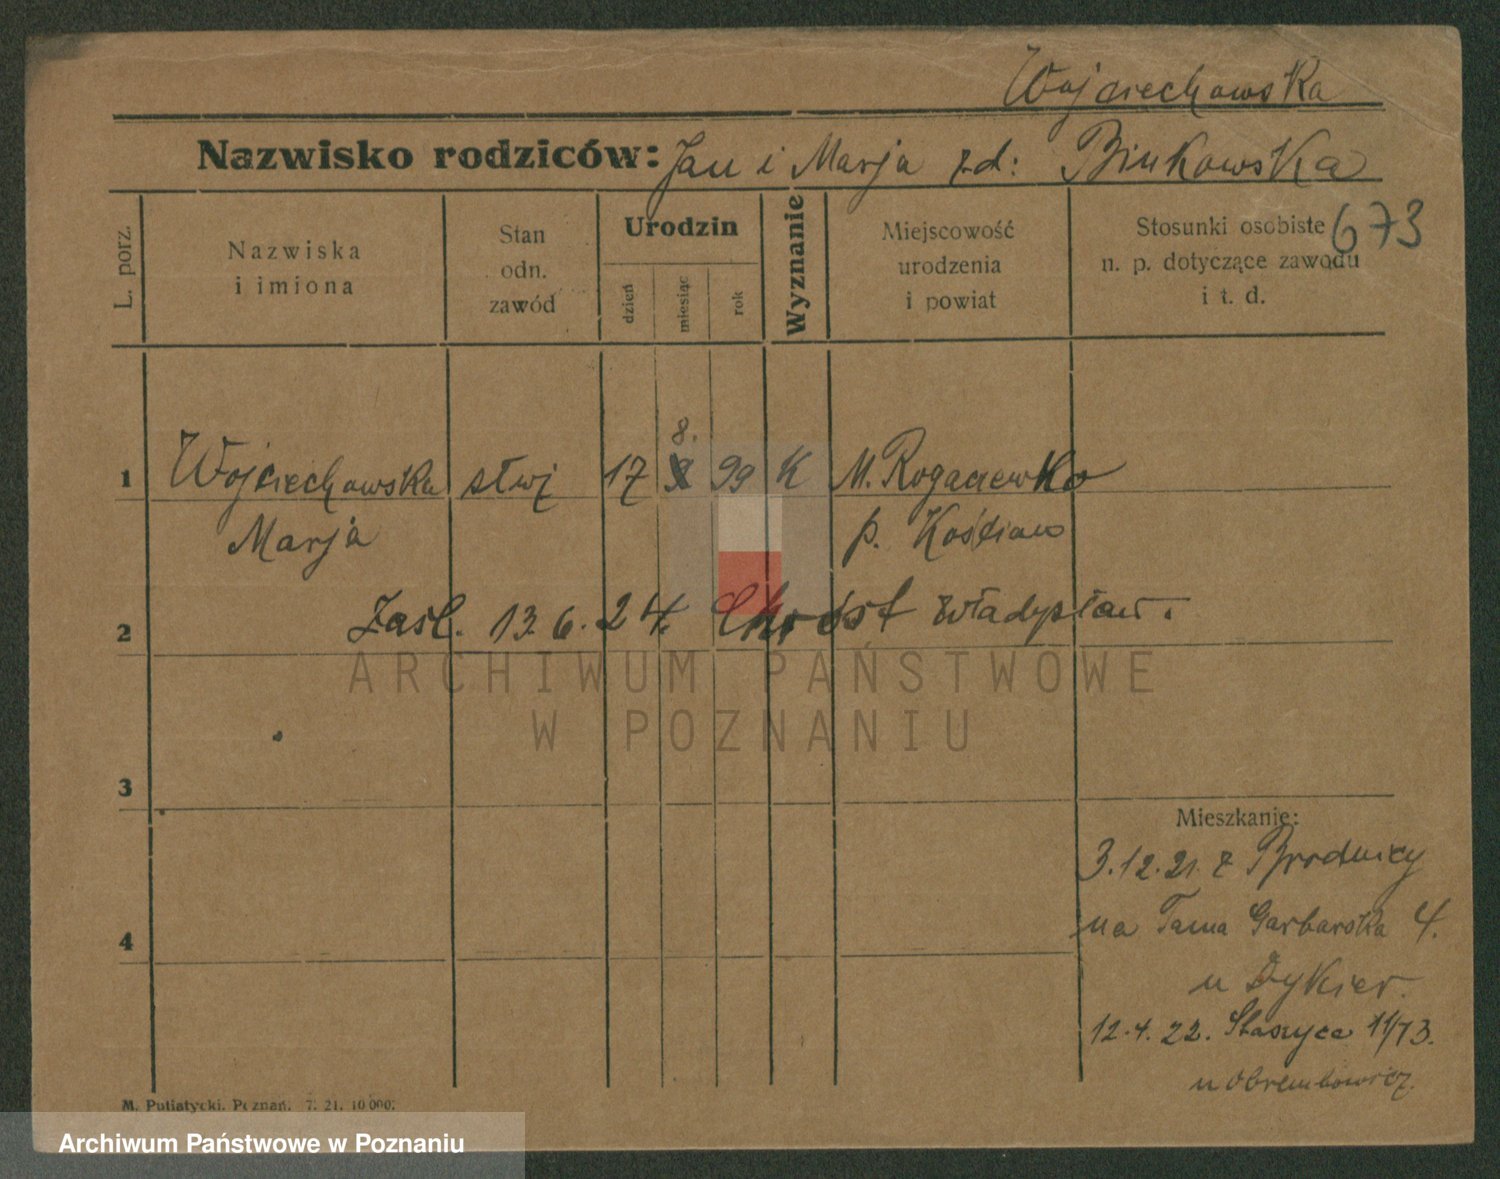 Wojciechowska
Nazwisko rodziców: Jan i Marja z d: Binkowska
673
L. porz.
Nazwiska
i imiona
Stan
odn.
zawód
Urodzin
dzień
miesiąc
rok
Wyznanie
Miejscowość
urodzenia
i powiat
Stosunki osobiste
n. p. dotyczące zawodu
i t. d.
8.
1 Wojciechowska służ 17 99 K M. Rogaczewko
Marja p. Kościan
2 Zaśl. 13. 6. 24. Chróst Władysław.
ARCHIWUM PAŃSTWOWE
W POZNANIU
3
Mieszkanie:
3.12.21. z Brodnicy
na Tama Garbarska 4.
4
u Dykier.
12.4.22. Staszyca 11/13.
u Obrembowicz.
M. Putiatycki. Poznań. 7. 21. 10 000.
Archiwum Państwowe w Poznaniu